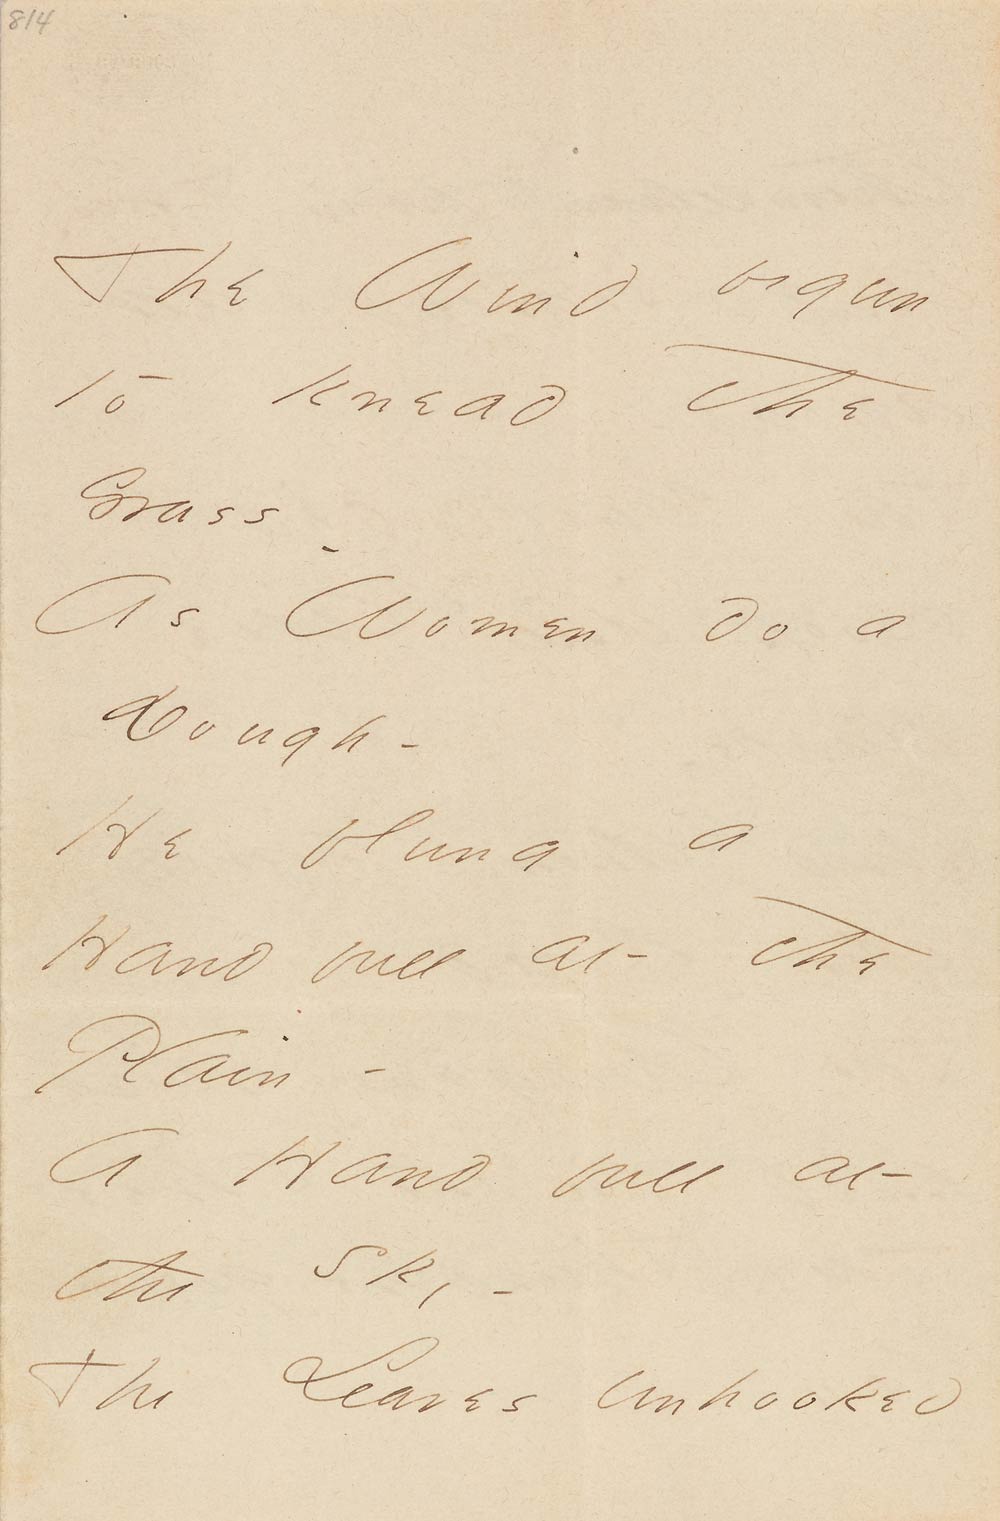 814
The Wind begun
to knead the
Grass -
As Women do a
Dough -
He flung a
Hand full at the
Plain -
A Hand full at
the Sky -
The Leaves unhooked